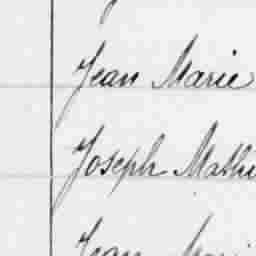 Jean Marie
Joseph Mathi
Jean Mari